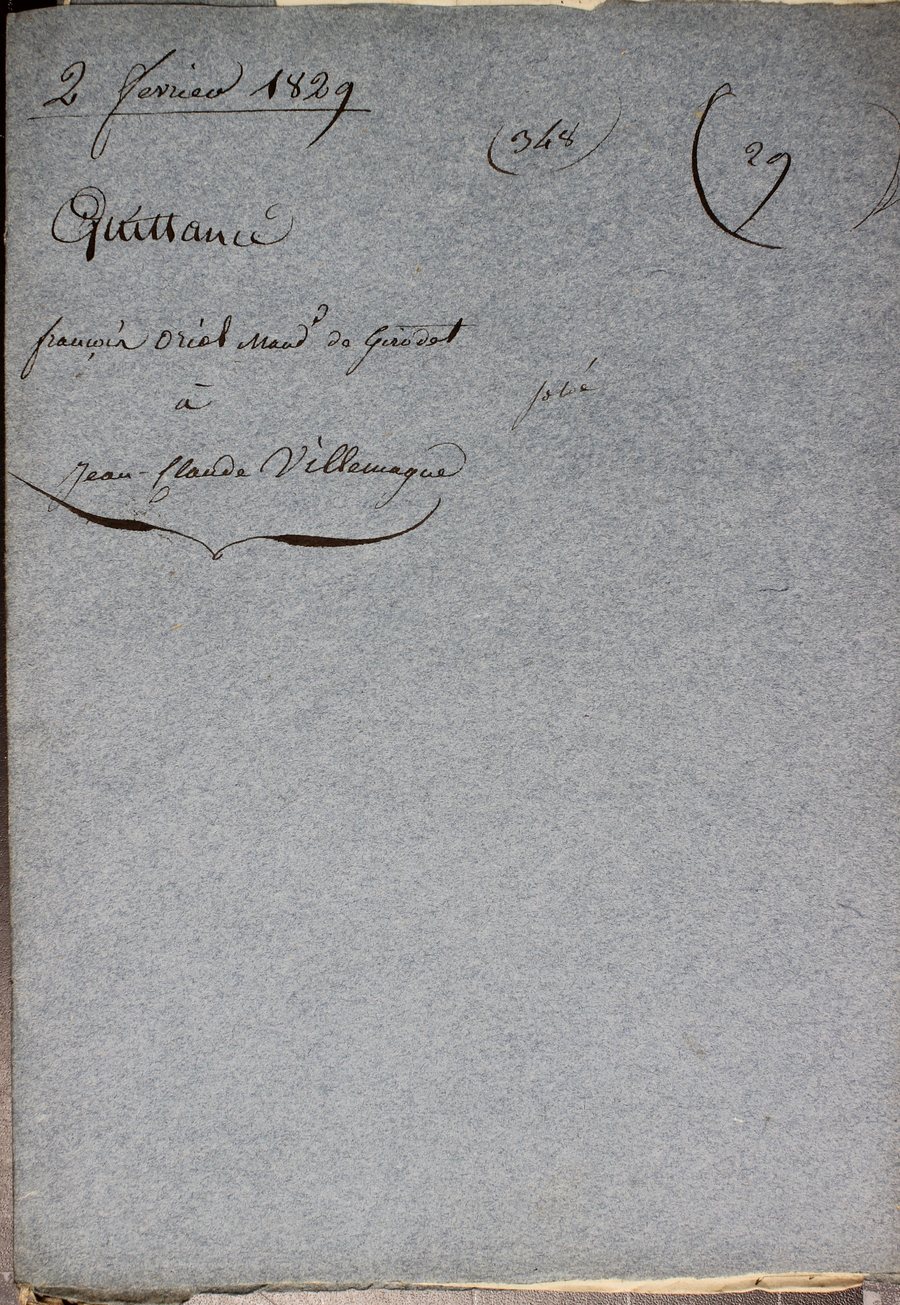 2 février 1829
(348)
(29)
Quittance
françois Oriol Mand.e de Girodet
à
Jean-Claude Villemagne